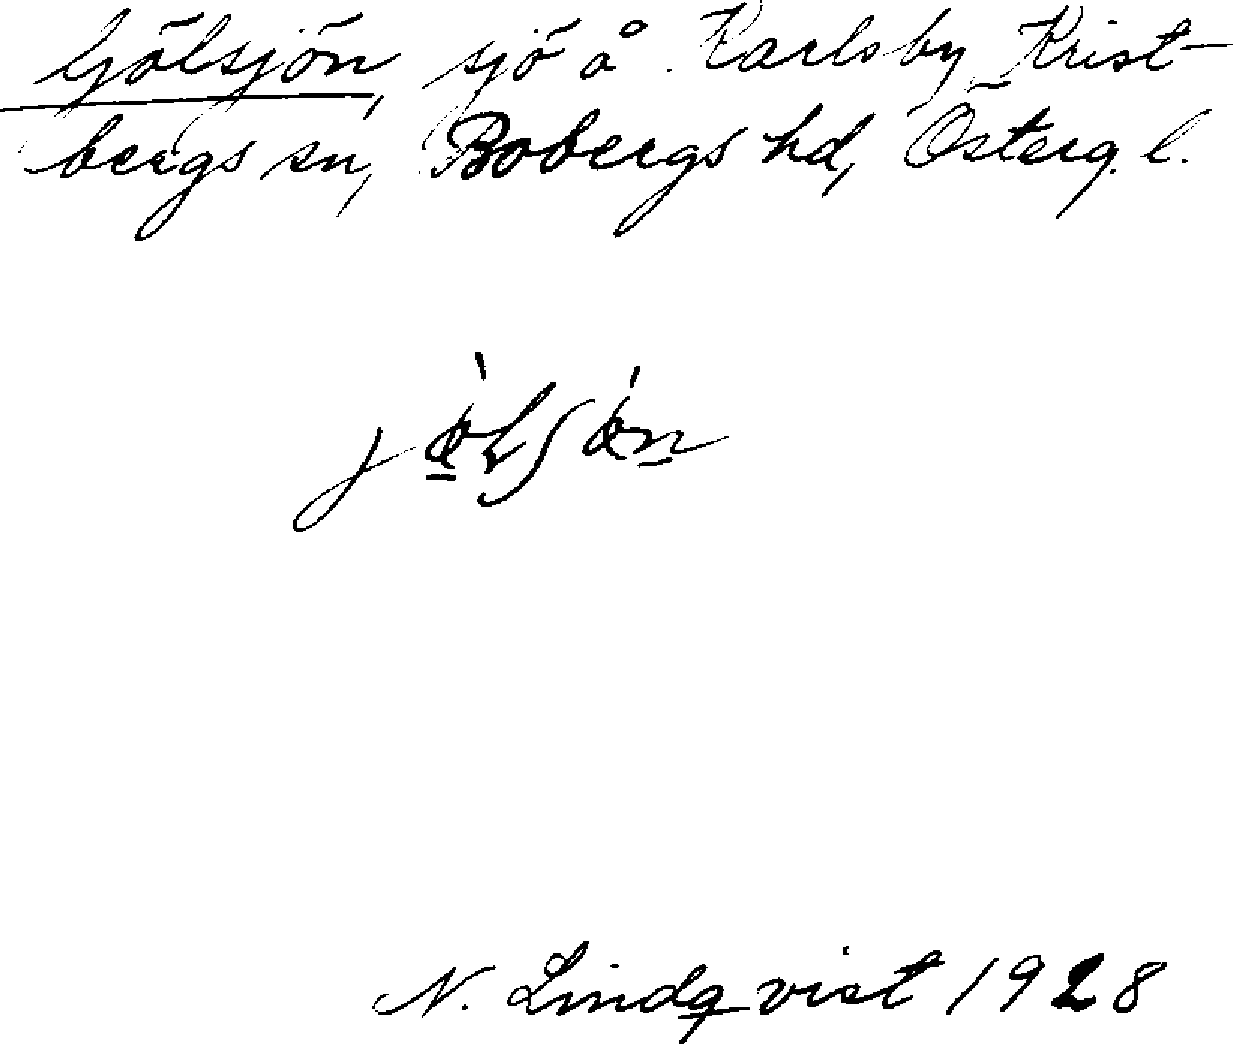 Gölsjön, sjö å Karlsby, Krist-
bergs sn, Bobergs hd, Österg. l.
N. Lindqvist 1928